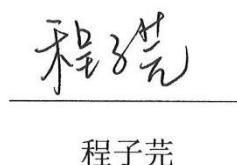 程子芫
程子芫